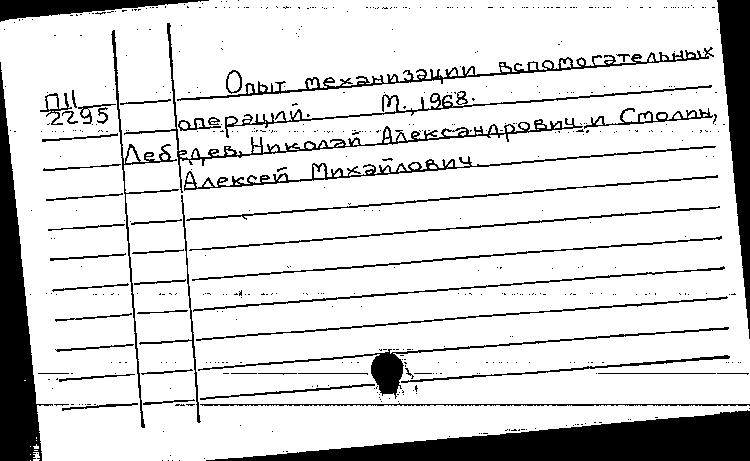 Опыт механизации вспомогательных
П11
2295
операций. М., 1968.
Лебедев, Николай Александрович, и Столин,
Алексей Михайлович.